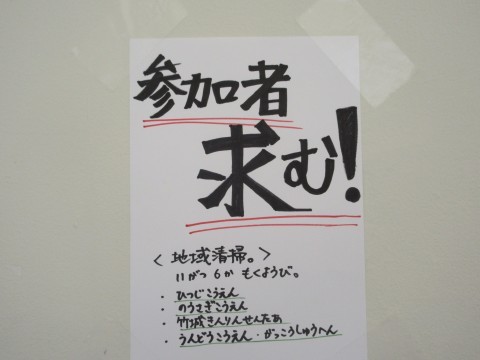 参加者
求む!
<地域清掃。>
11がつ6か もくようび。
・ひつじこうえん
・のうさぎこうえん
・竹城きんりんせんたあ
・うんどうこうえん・がっこうしゅうへん